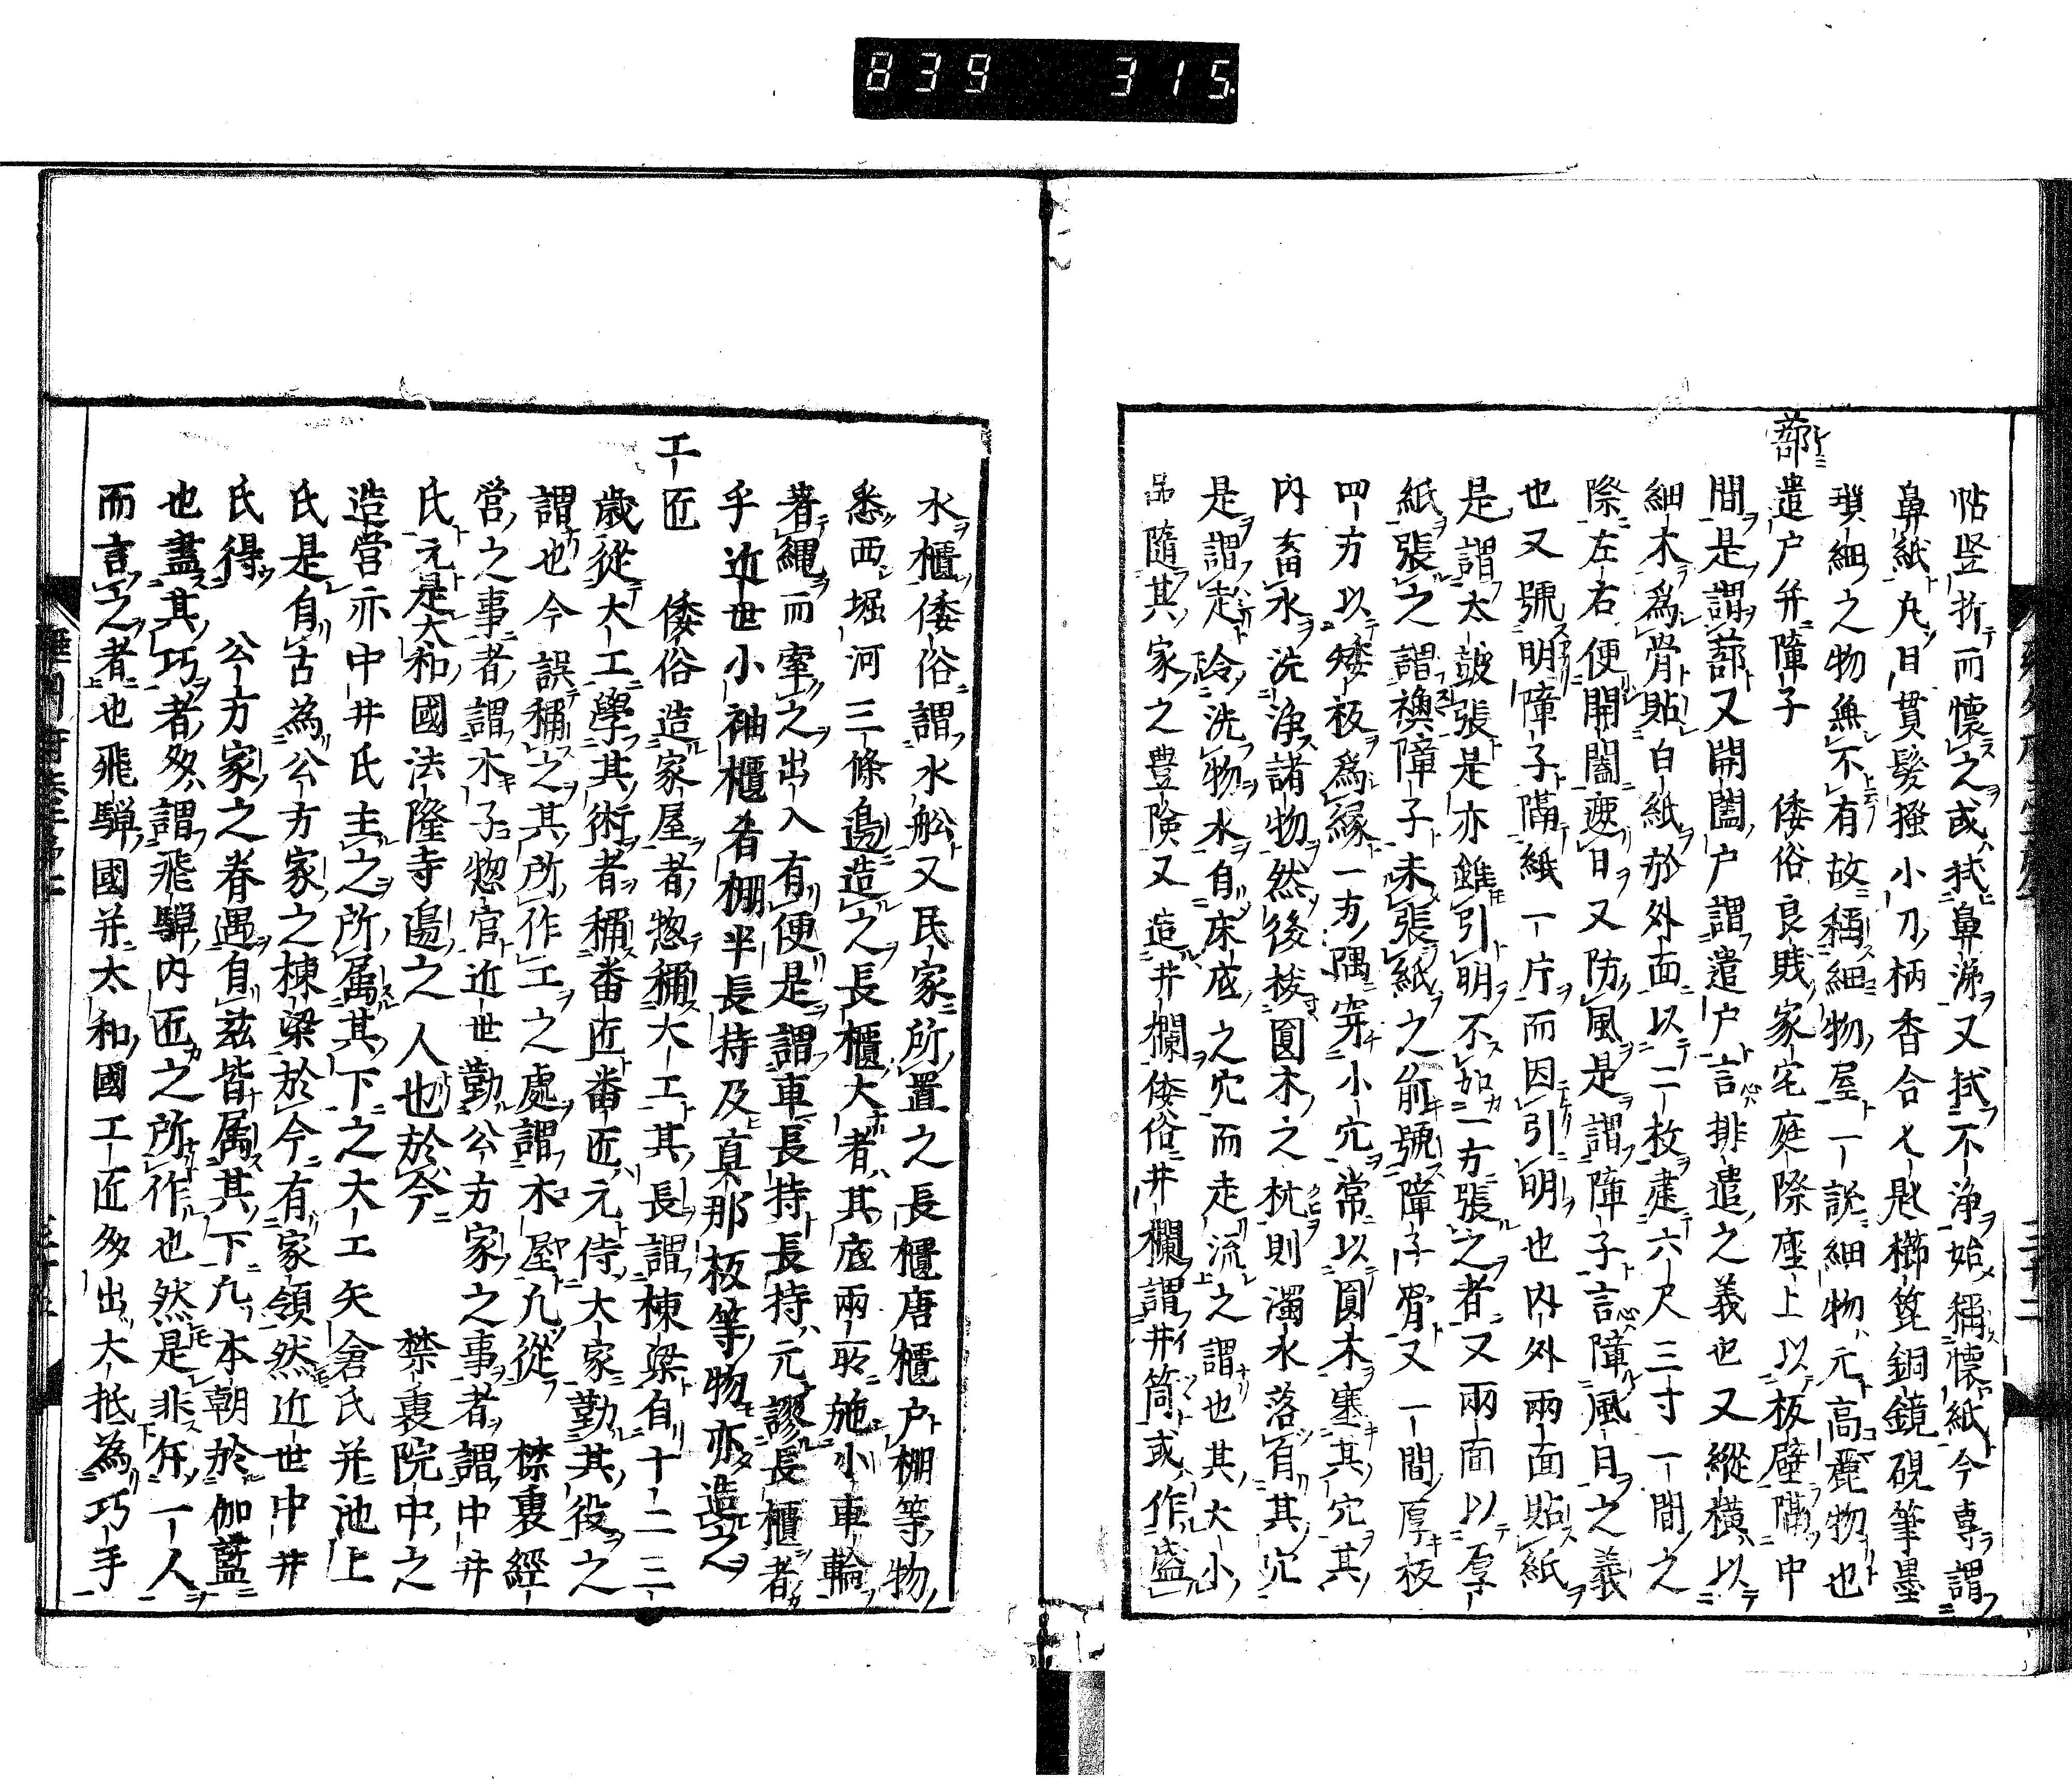 839 315
帖竖折而懷之或拭鼻涕又拭不浄始稱懷紙今專謂
鼻紙凡日貫髮掻小刀柄香合匕匙櫛笓銅鏡硯筆墨
瑣細之物無不有故稱細物屋一説細物元高麗物也
蔀遣戸并障子 倭俗良賤家宅庭際座上以板壁隔中
間是謂蔀又開闔戸謂遣戸言排遣之義也又縱横以
細木爲骨貼白紙於外面以二枚建六尺三寸一間之
際左右便開闔遮日又防風是謂障子言障風日之義
也又號明障子隔紙一片而因引明也内外兩面貼紙
是謂太皷張是亦雖引明不如一方張之者又兩面以厚
紙張之謂襖障子未張紙之前號障子骨又一間厚板
四方以矮板爲縁一方隅穿小穴常以圓木塞其穴其
内畜水洗浄諸物然後拔圓木之杭則濁水落自其穴
是謂走冷洗物水自床底之穴而走流之謂也其大小
品隨其家之豊険又造井欄倭俗井欄謂井筒或作盛
水櫃倭俗謂水舩又民家所置之長櫃唐櫃戸棚等物
悉西堀河三條邊造之長櫃大者其底兩耴施小車輪
著繩而牽之出入有便是謂車長持長持元謬長櫃者
乎近世小袖櫃者棚半長持及真那板等物亦造之
工匠 倭俗造家屋者惣稱大工其長謂棟梁自十二三
歳從大工學其術者稱番匠番匠元侍大家勤其役之
謂也今誤稱之其所作工之處謂木屋凡從 禁裏經
營之事者謂木子惣官近世勤公方家之事者謂中井
氏元是大和國法隆寺邊之人也於今 禁裏院中之
造營亦中井氏主之所属其下之大工矢倉氏并池上
氏是自古為公方家之棟梁於今有家領然近世中井
氏得 公方家之眷遇自茲皆属其下凢本朝於伽藍
也盡其巧者多謂飛騨内匠之所作也然是非斥一人
而言之者也飛騨國并大和國工匠多出大抵為巧手